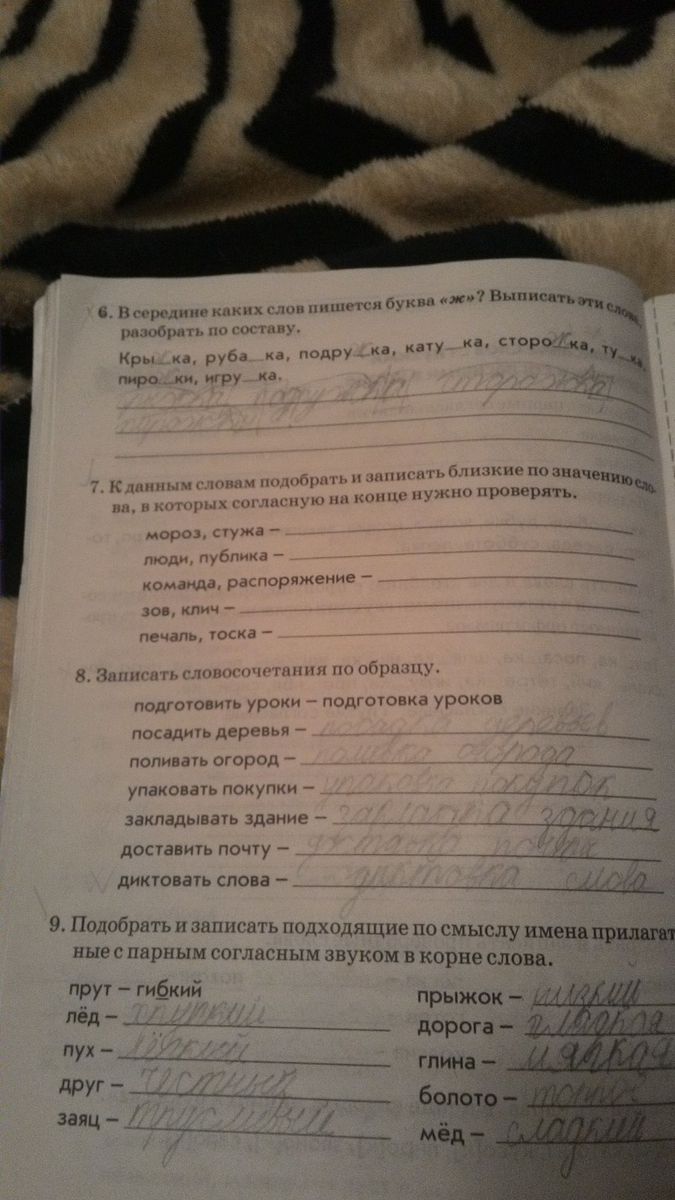 6. В середине каких слов пишется буква «ж»? Выписать эти слова,
разобрать по составу.
Кры_ка, руба_ка, подружка, кату_ка, сторожка, ту_ка,
пиро_ки, игру_ка.
подружка сторожка
пирожки
7. К данным словам подобрать и записать близкие по значению сло-
ва, в которых согласную на конце нужно проверять.
мороз, стужа –
люди, публика –
команда, распоряжение –
зов, клич –
печаль, тоска –
8. Записать словосочетания по образцу.
подготовить уроки – подготовка уроков
посадить деревья – посадка деревьев
поливать огород – поливка огорода
упаковать покупки – упаковка покупок
закладывать здание – здания
доставить почту – доставка почты
диктовать слова – диктовка слова
9. Подобрать и записать подходящие по смыслу имена прилагат
ные с парным согласным звуком в корне слова.
прут – гибкий
лёд – хрупкий
пух – лёгкий
друг – честный
заяц – трусливый
прыжок – низкий
дорога – гладкая
глина – мягкая
болото – топкое
мёд – сладкий